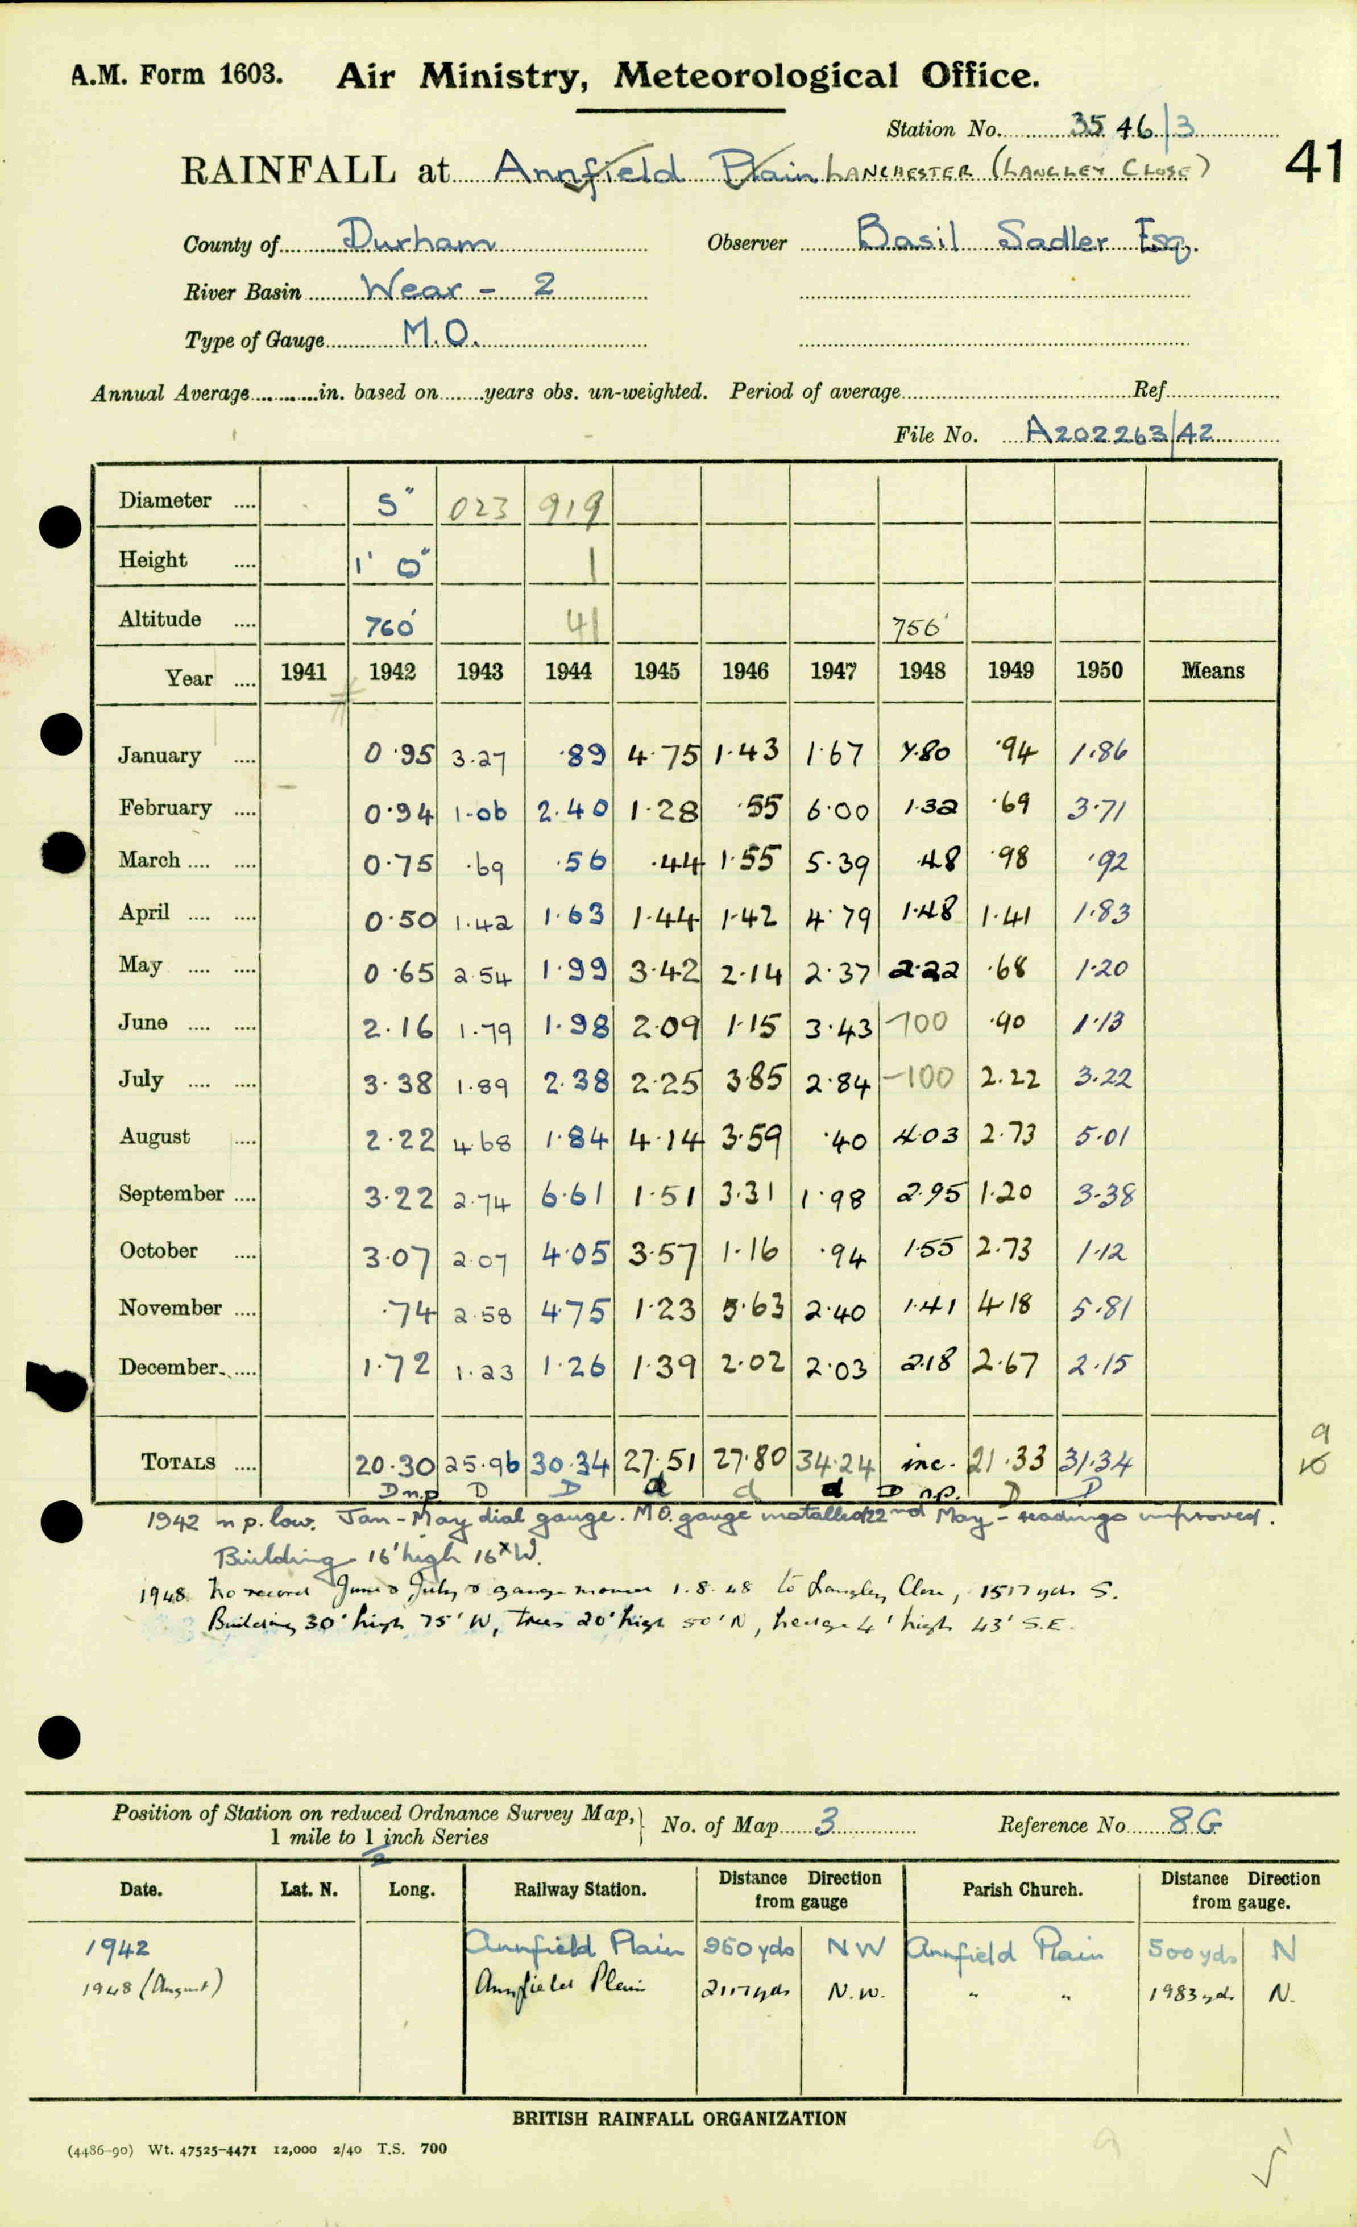 A.M. Form 1603. Air Ministry, Meteorological Office.
Station No. 3546/3
RAINFALL at Annfield Plain LANCHESTER (LANGLEY CLOSE) 41
County of Durham Observer Basil Sadler Esq.
River Basin Wear - 2
Type of Gauge M.O.
Annual Average in. based on years obs. un-weighted. Period of average Ref.
File No. A202263/42
Diameter 5" 023 919
Height 1' 0" 1
Altitude 760' 41 756'
Year 1941 1942 1943 1944 1945 1946 1947 1948 1949 1950 Means
January 0.95 3.27 .89 4.75 1.43 1.67 4.80 .94 1.86
February 0.94 1.06 2.40 1.28 .55 6.00 1.32 .69 3.71
March 0.75 .69 .56 .44 1.55 5.39 .48 .98 .92
April 0.50 1.42 1.63 1.44 1.42 4.79 1.48 1.41 1.83
May 0.65 2.54 1.99 3.42 2.14 2.37 2.22 .68 1.20
June 2.16 1.79 1.98 2.09 1.15 3.43 -100 .90 1.13
July 3.38 1.89 2.38 2.25 3.85 2.84 -100 2.22 3.22
August 2.22 4.68 1.84 4.14 3.59 .40 4.03 2.73 5.01
September 3.22 2.74 6.61 1.51 3.31 1.98 2.95 1.20 3.38
October 3.07 2.07 4.05 3.57 1.16 .94 1.55 2.73 1.12
November .74 2.58 4.75 1.23 5.63 2.40 1.41 4.18 5.81
December 1.72 1.23 1.26 1.39 2.02 2.03 2.18 2.67 2.15
9
TOTALS 20.30 25.96 30.34 27.51 27.80 34.24 inc. 21.33 31.34 10
D n.p D D d d d D n.p. D D
1942 n p. low. Jan - May dial gauge. M.O. gauge installed 22nd May - readings improved.
Building 16' high 16x W.
1948 No record June & July & gauge moved 1.8.48 to Langley Close, 1517 yds S.
Building 30' high 75' W, trees 20' high 50' N, hedge 4' high 43' S.E.
Position of Station on reduced Ordnance Survey Map, No. of Map 3 Reference No 8G
1 mile to 1 inch Series
2
Date. Lat. N. Long. Railway Station. Distance Direction from gauge Parish Church. Distance Direction from gauge.
1942 Annfield Plain 950 yds NW Annfield Plain 500 yds N
1948 (August) Annfield Plain 2117 yds N.W. " " 1983 yds N.
BRITISH RAINFALL ORGANIZATION
(4486-90) Wt. 47525-4471 12,000 2/40 T.S. 700
9